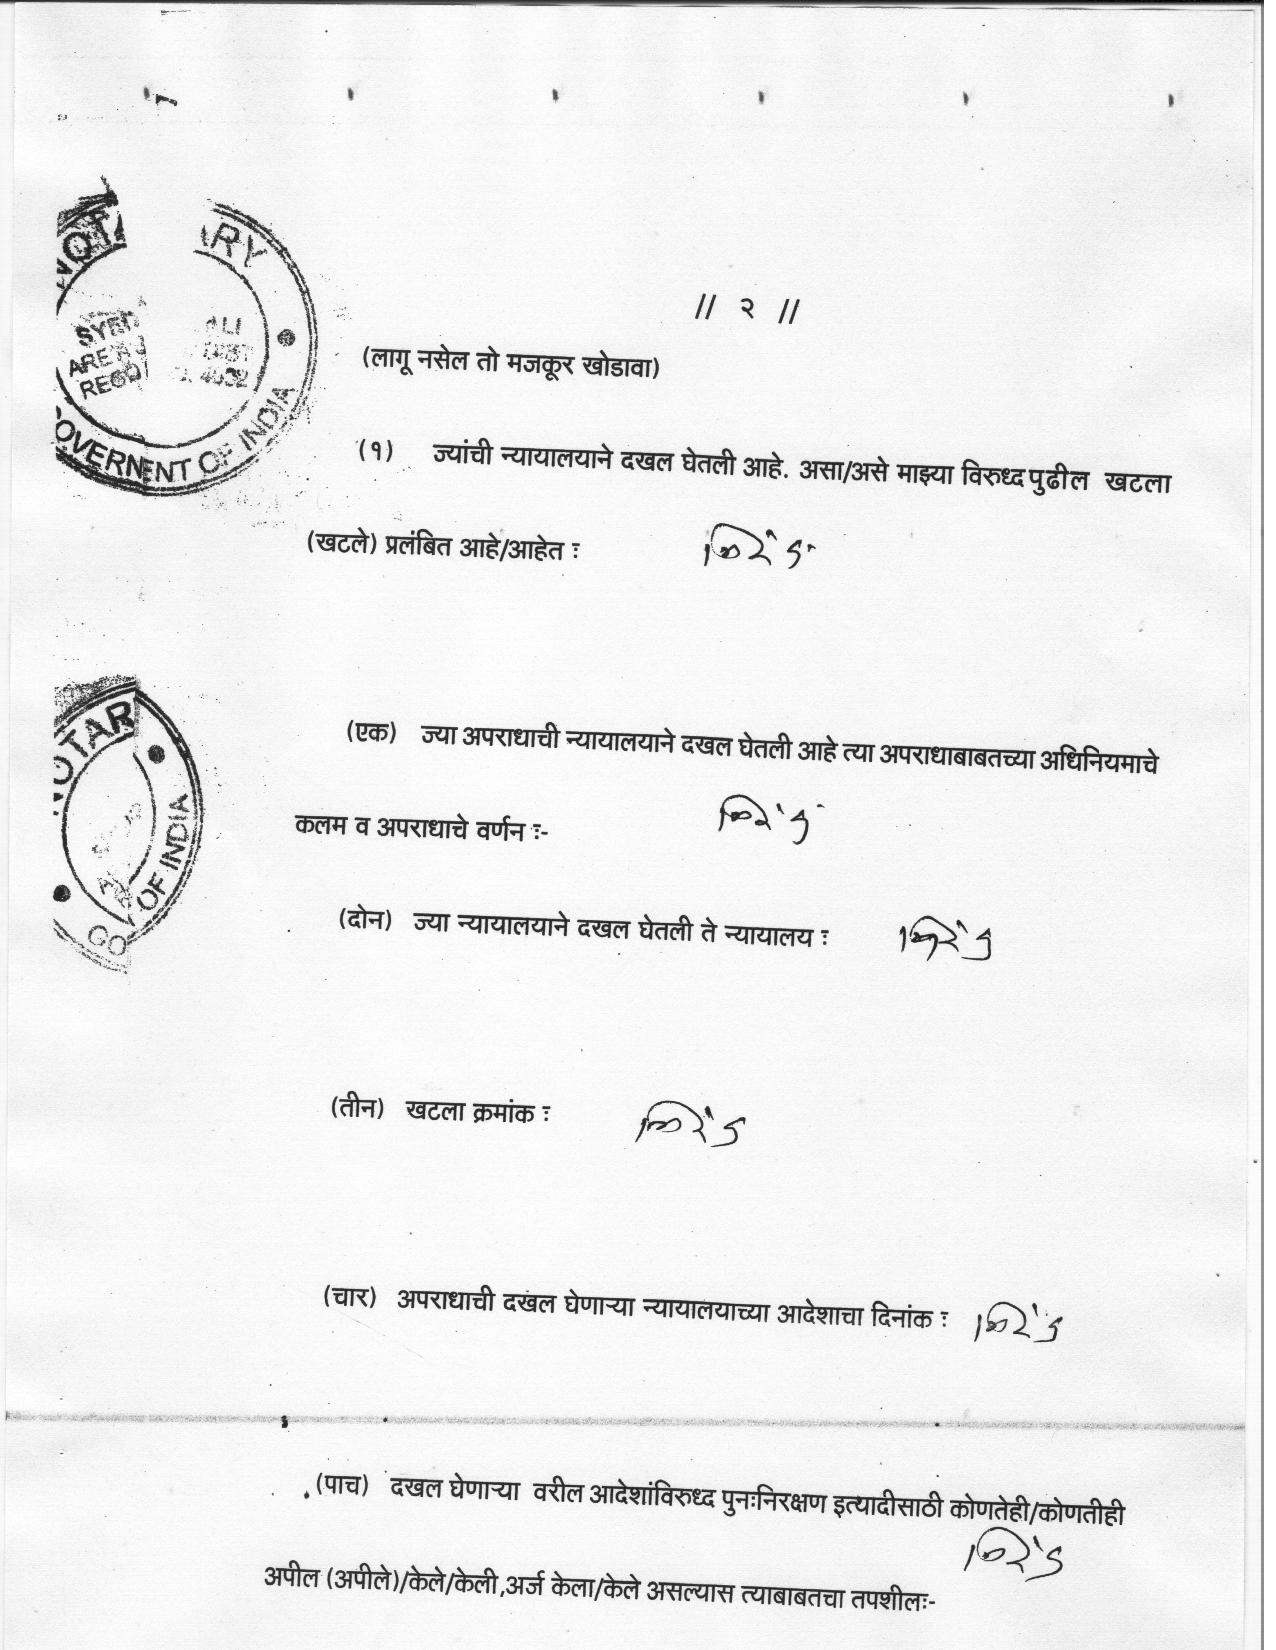 NOTARY
SYED ALI
REGD 4032
GOVERNENT OF INDIA
// २ //
(लागू नसेल तो मजकूर खोडावा)
(१) ज्यांची न्यायालयाने दखल घेतली आहे. असा/असे माझ्या विरुध्द पुढील खटला
(खटले) प्रलंबित आहे/आहेत :
NOTAR
(एक) ज्या अपराधाची न्यायालयाने दखल घेतली आहे त्या अपराधाबाबतच्या अधिनियमाचे
कलम व अपराधाचे वर्णन :-
OF INDIA
(दोन) ज्या न्यायालयाने दखल घेतली ते न्यायालय :
(तीन) खटला क्रमांक :
(चार) अपराधाची दखल घेणाऱ्या न्यायालयाच्या आदेशाचा दिनांक :
(पाच) दखल घेणाऱ्या वरील आदेशांविरुध्द पुनःनिरक्षण इत्यादीसाठी कोणतेही/कोणतीही
अपील (अपीले)/केले/केली,अर्ज केला/केले असल्यास त्याबाबतचा तपशीलः-